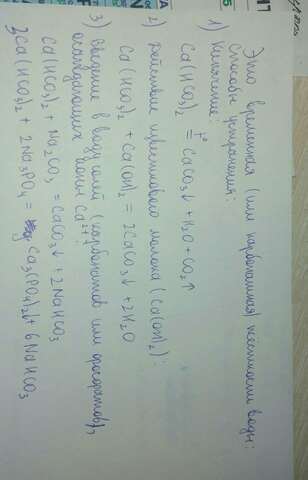 Это временная (или карбонатная) жесткость воды:
Способы устранения:
1) Кипячение:
Ca(HCO₃)₂ =^t° CaCO₃↓ + H₂O + CO₂↑
2) Действие известкового молока (Ca(OH)₂):
Ca(HCO₃)₂ + Ca(OH)₂ = 2CaCO₃↓ + 2H₂O
3) Введение в воду солей (карбонатов или фосфатов),
осаждающих ионы Ca²⁺:
Ca(HCO₃)₂ + Na₂CO₃ = CaCO₃↓ + 2NaHCO₃
3Ca(HCO₃)₂ + 2Na₃PO₄ = Ca₃(PO₄)₂↓ + 6NaHCO₃